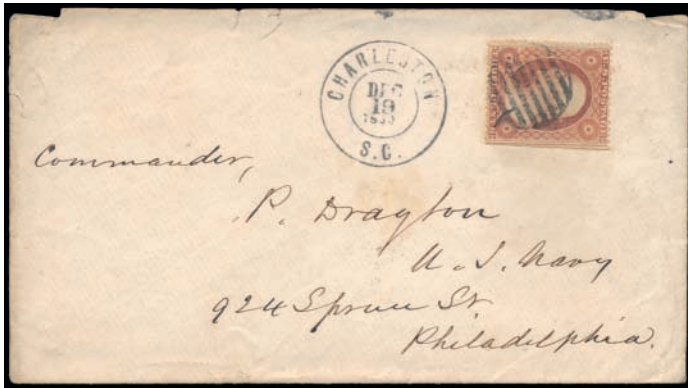 CHARLESTON
DEC
19
S.C.
Commander,
P. Drayton
U.S. Navy
924 Spruce St.
Philadelphia.